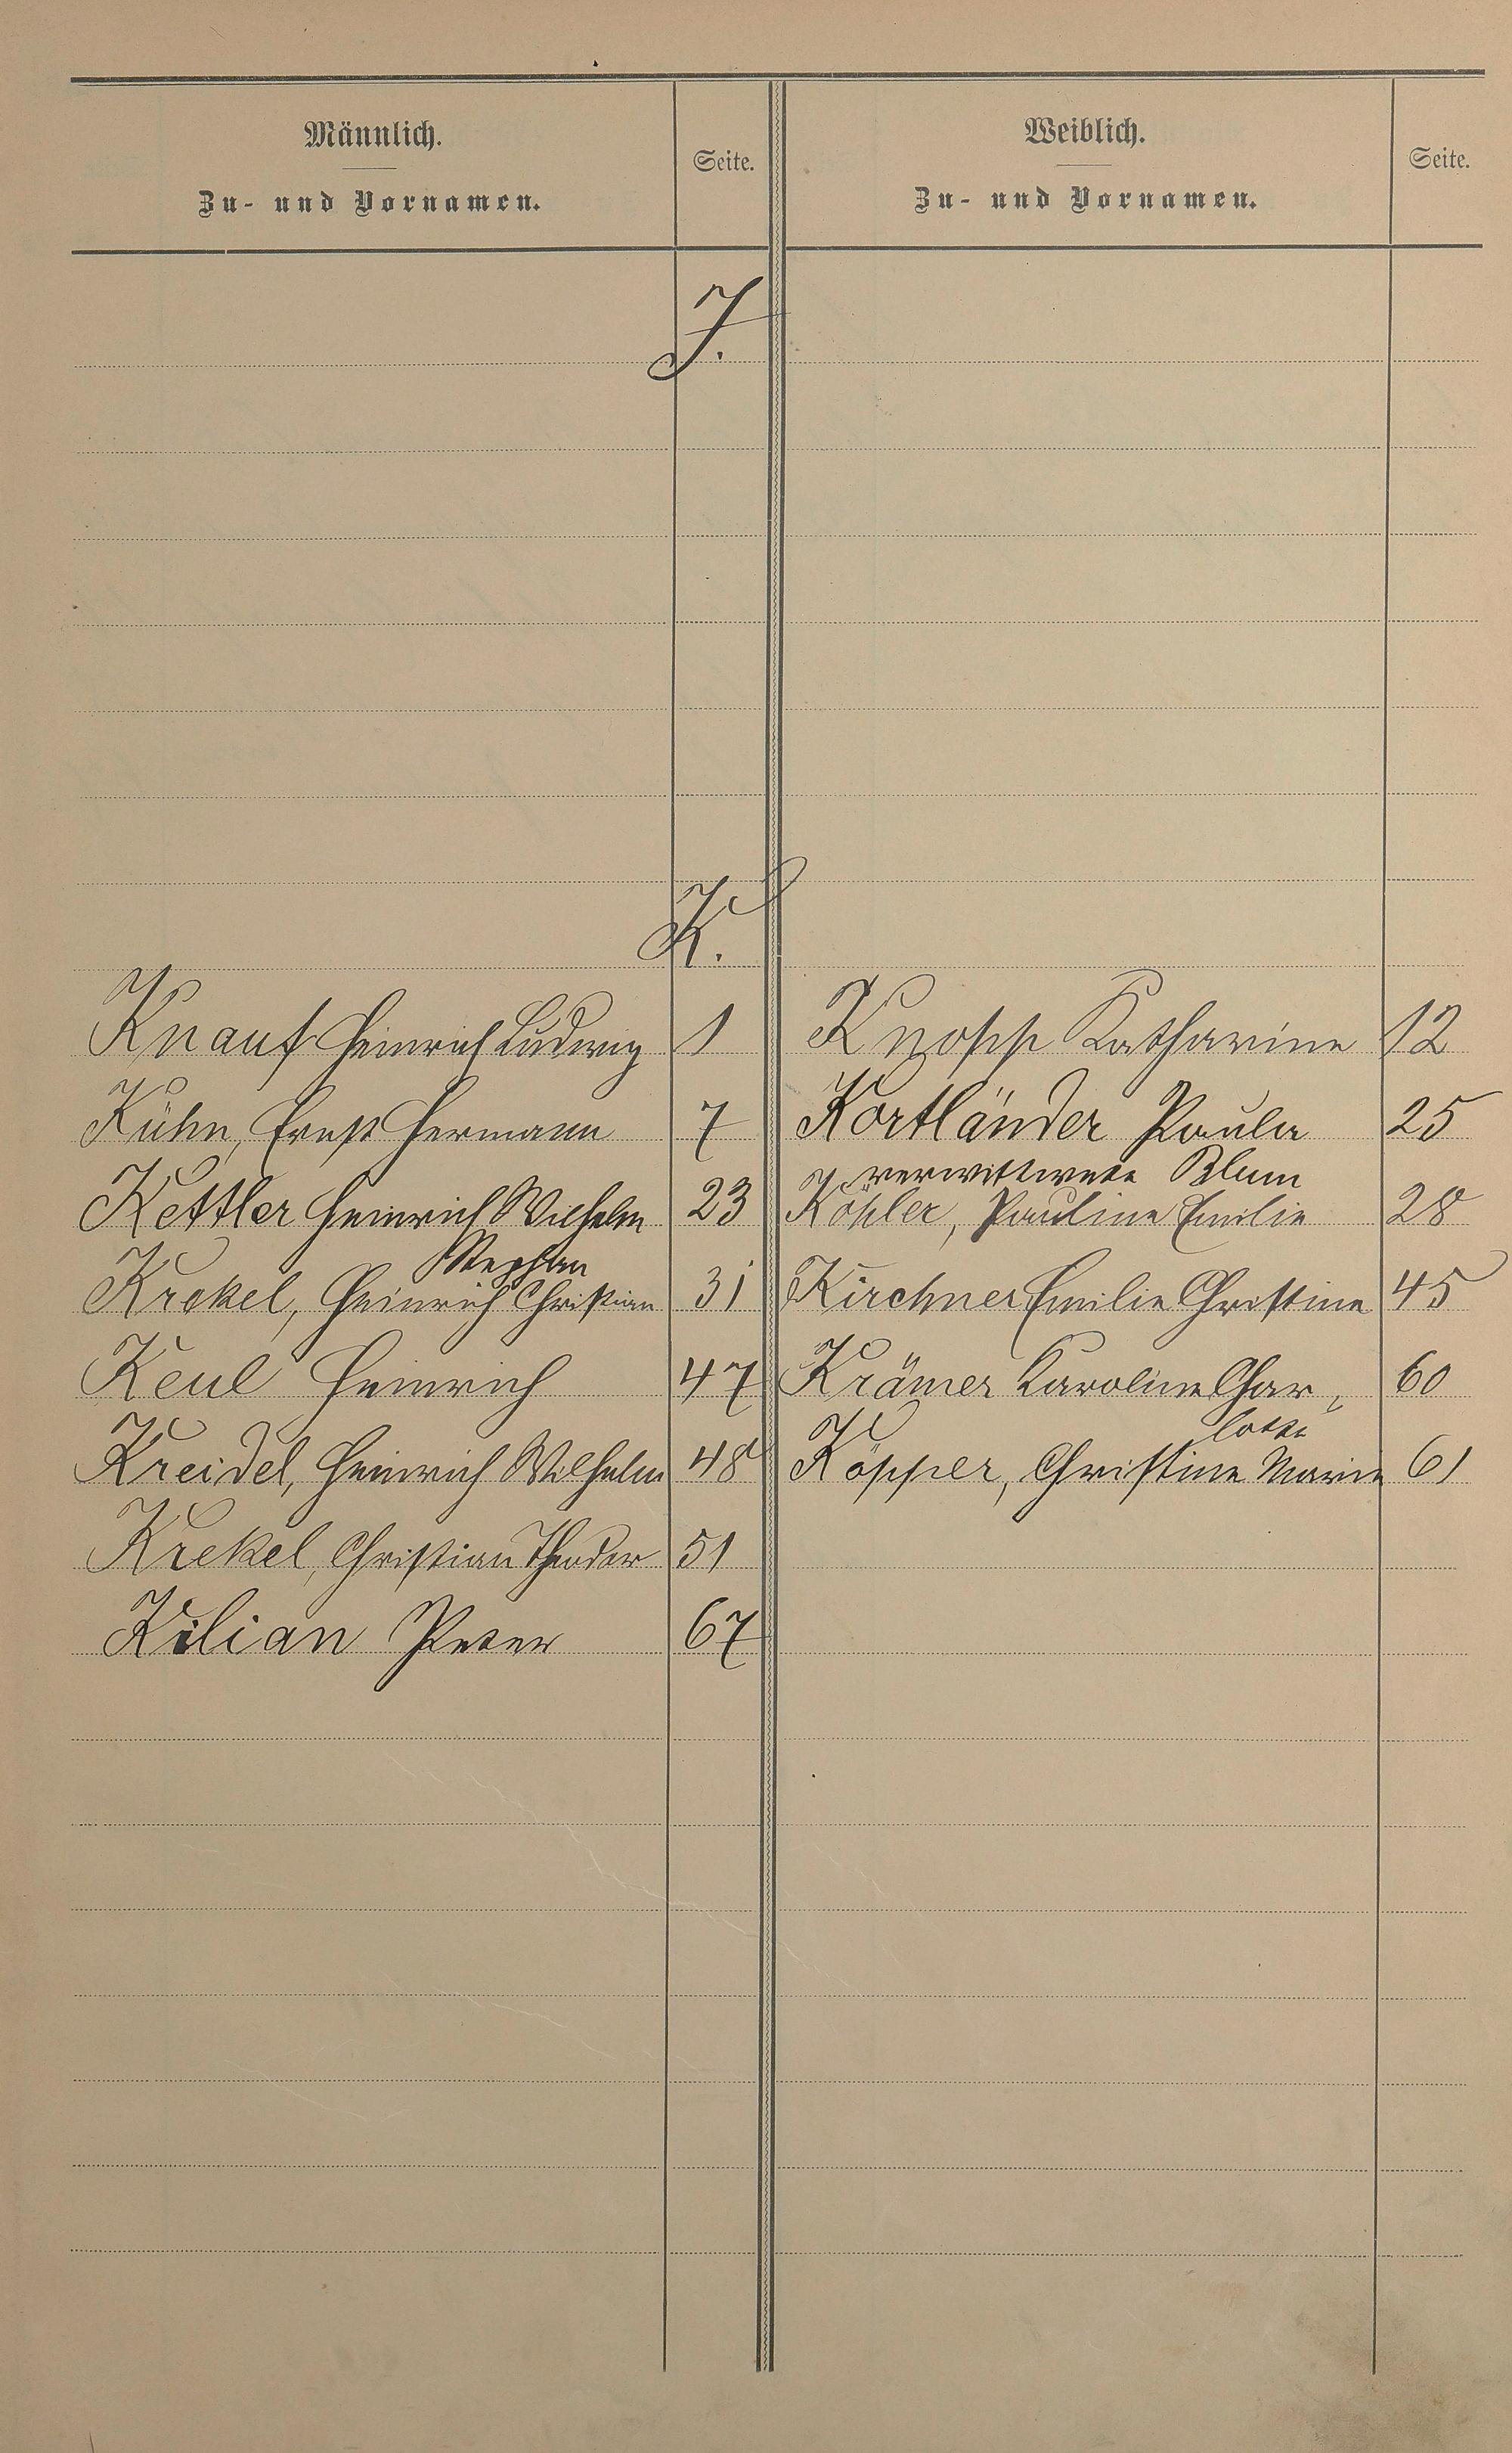 Männlich.
Zu- und Vornamen.
Seite.
Weiblich.
Zu- und Vornamen.
Seite.
J.
K.
Knauf Heinrich Ludwig 1
Knopp Katharine 12
Kühn, Ernst Hermann 7
Kortländer Paula 25
verwittwete Blum
Kettler Heinrich Wilhelm 23
Köhler, Pauline Emilie 28
Stephan
Krekel, Heinrich Christian 31
Kirchner Emilie Christine 45
Keul Heinrich 47
Krämer Karoline Char,
lotte 60
Kreidel, Heinrich Wilhelm 48
Köpper, Christine Marie 61
Krekel, Christian Theodor 51
Kilian Peter 67